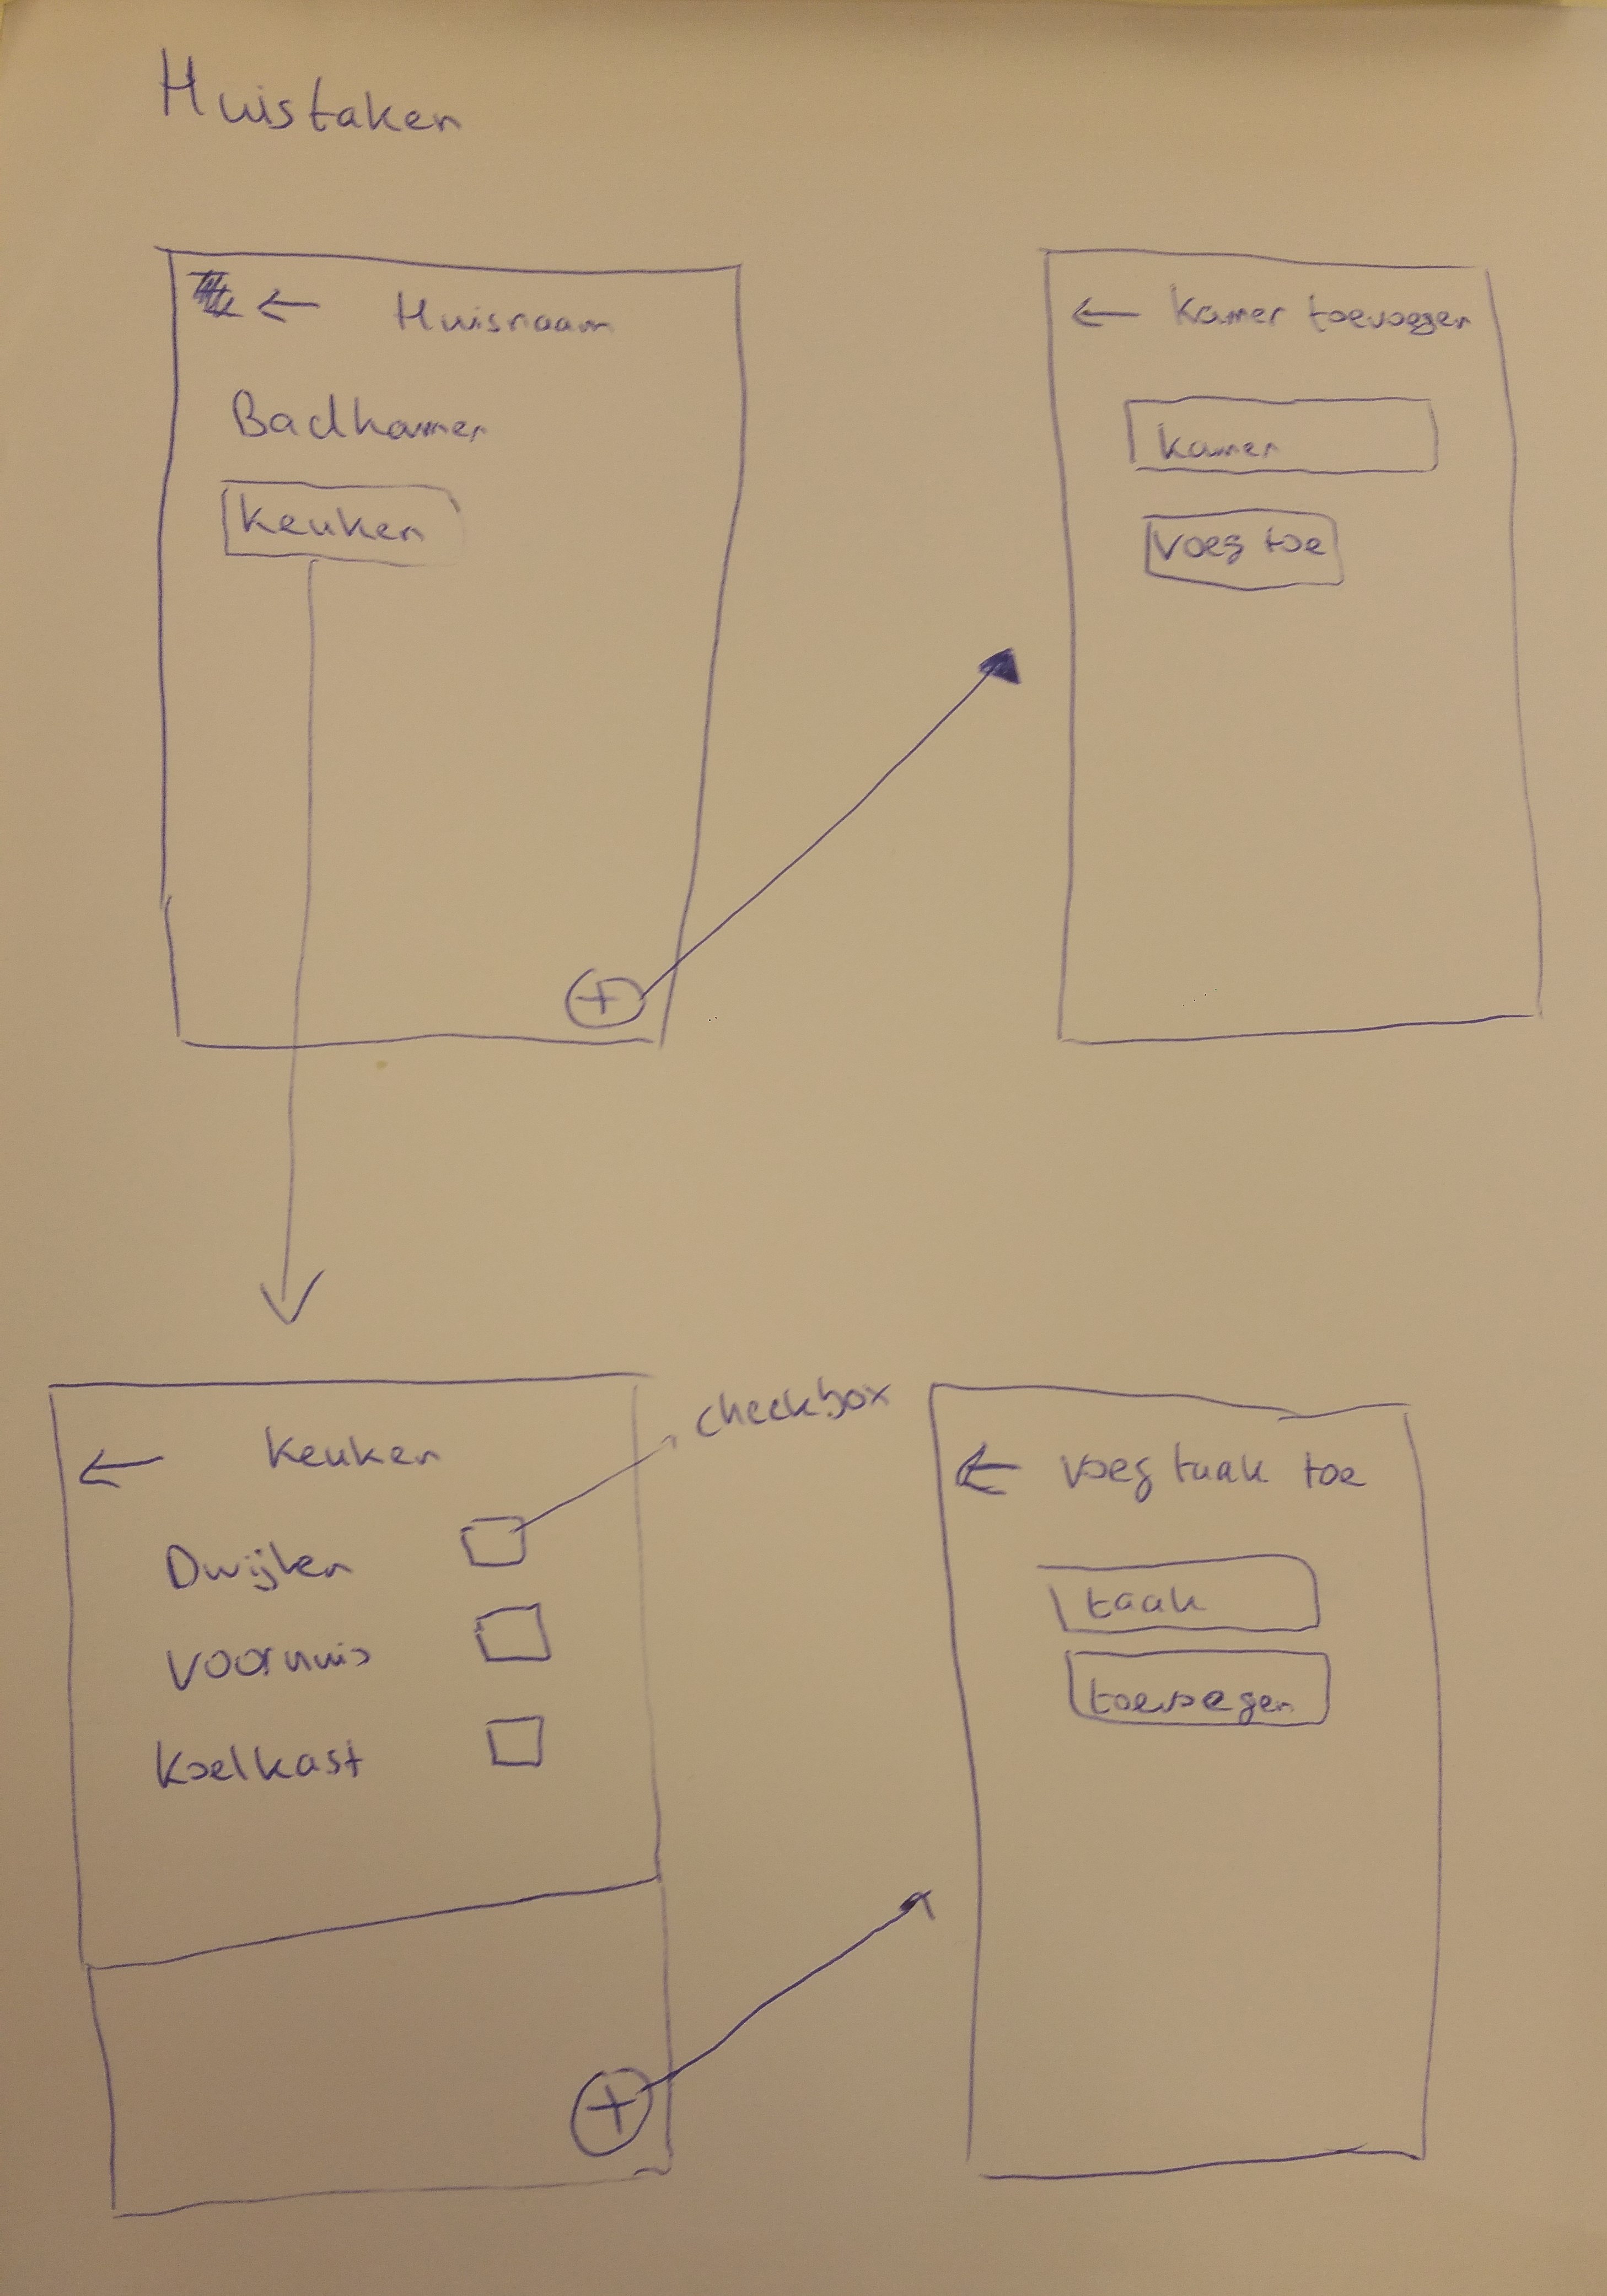 Huistaken
← Huisnaam
Badkamer
Keuken
+
← Kamer toevoegen
kamer
voeg toe
← Keuken
checkbox
Dwijlen
Voornuis
Koelkast
+
← voeg taak toe
taak
toevoegen